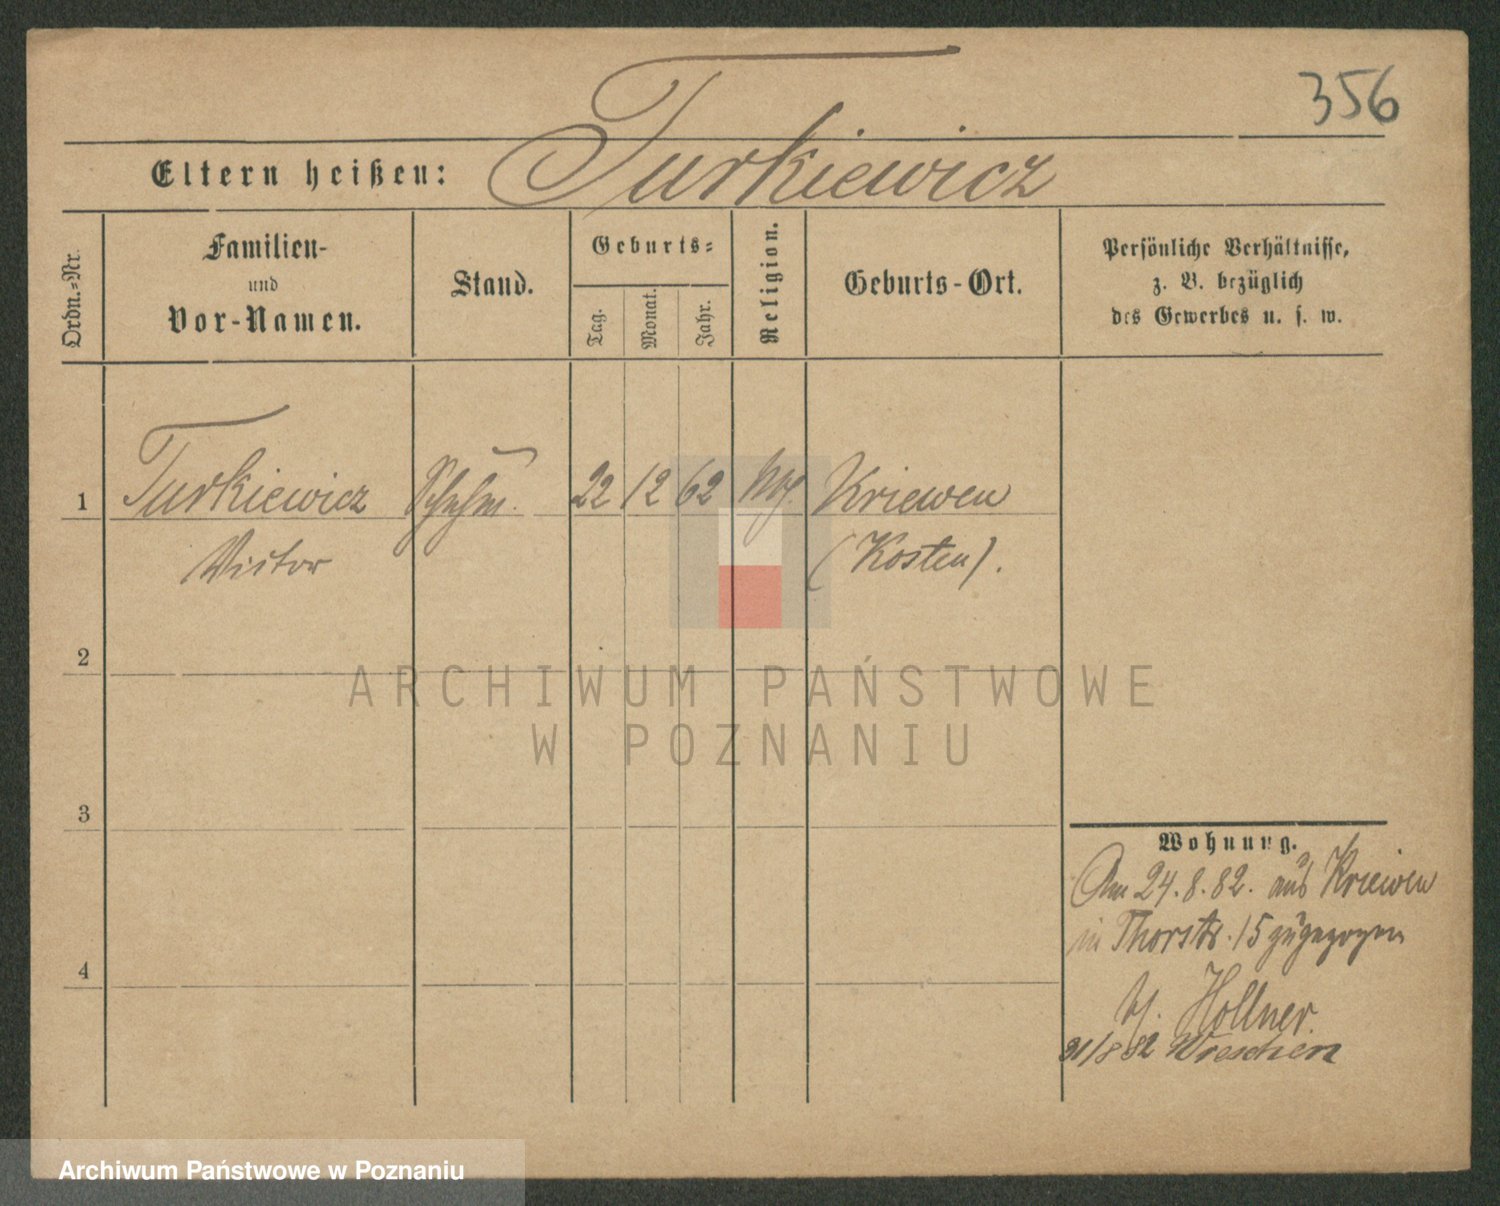 356
Eltern heißen: Turkiewicz
Ordn.-Nr.
Familien-
und
Vor-Namen.
Stand.
Geburts-
Tag.
Monat.
Jahr.
Religion.
Geburts-Ort.
Persönliche Verhältnisse,
z. B. bezüglich
des Gewerbes u. s. w.
1 Turkiewicz 22 12 62 Kriewen
Victor (Kosten).
2
3
4
Wohnung.
Am 24.8.82. aus Kriewen
in Thorstr. 15 zugezogen
b/. Hollner.
31/8 82 Wreschen
ARCHIWUM PAŃSTWOWE
W POZNANIU
Archiwum Państwowe w Poznaniu